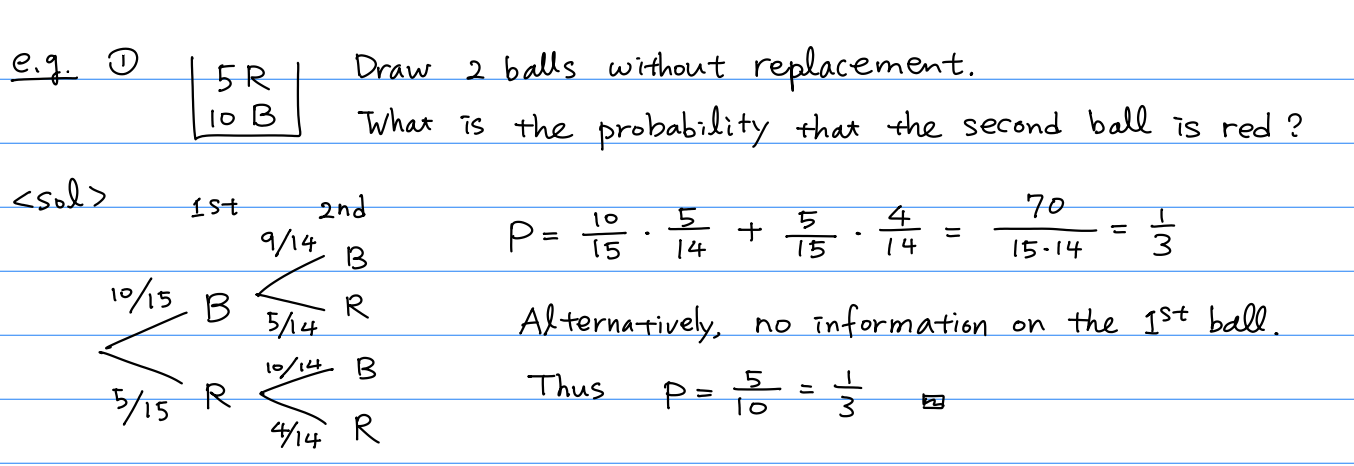 e.g. ① 5 R Draw 2 balls without replacement.
10 B What is the probability that the second ball is red?
<sol> 1st 2nd
9/14 B
10/15 B
5/14 R
10/14 B
5/15 R
4/14 R
P = 10/15 · 5/14 + 5/15 · 4/14 = 70/15·14 = 1/3
Alternatively, no information on the 1st ball.
Thus P = 5/10 = 1/3